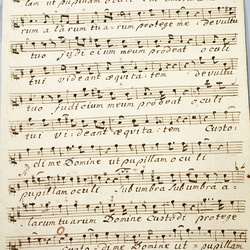 lam ut pupillam oculi sub um
rum alarum tuarum protege me de vultu
tuo judicium meum prodeat oculi
tui videant æquitatem de vultu
tuo judicium meum prodeat oculi
tui videant æquitatem Custo:
di me Domine ut pupillam oculi
pupillam oculi sub umbra sub umbra a:
larum tuarum Domine Custodi protege
Custodi me Domine ut pupillam